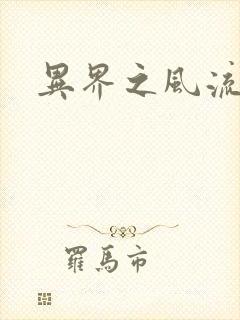 異界之風流
羅馬市